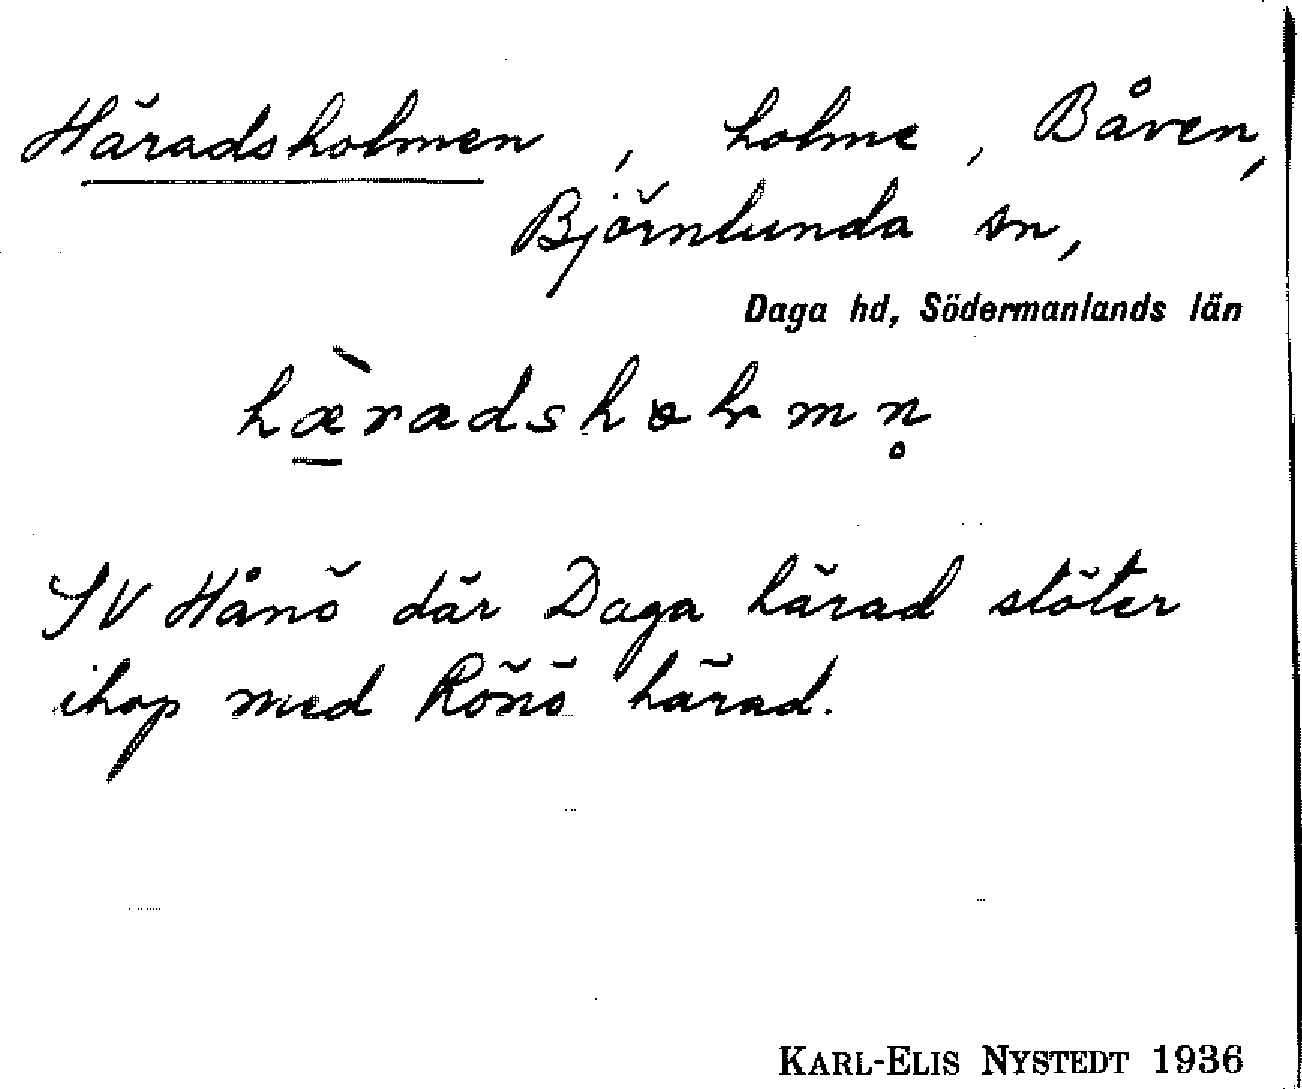 Häradsholmen, holme, Båven,
Björnlunda sn,
Daga hd, Södermanlands län
hæ̀radsholmn̥
SV Hånö där Daga härad stöter
ihop med Rönö härad.
KARL-ELIS NYSTEDT 1936